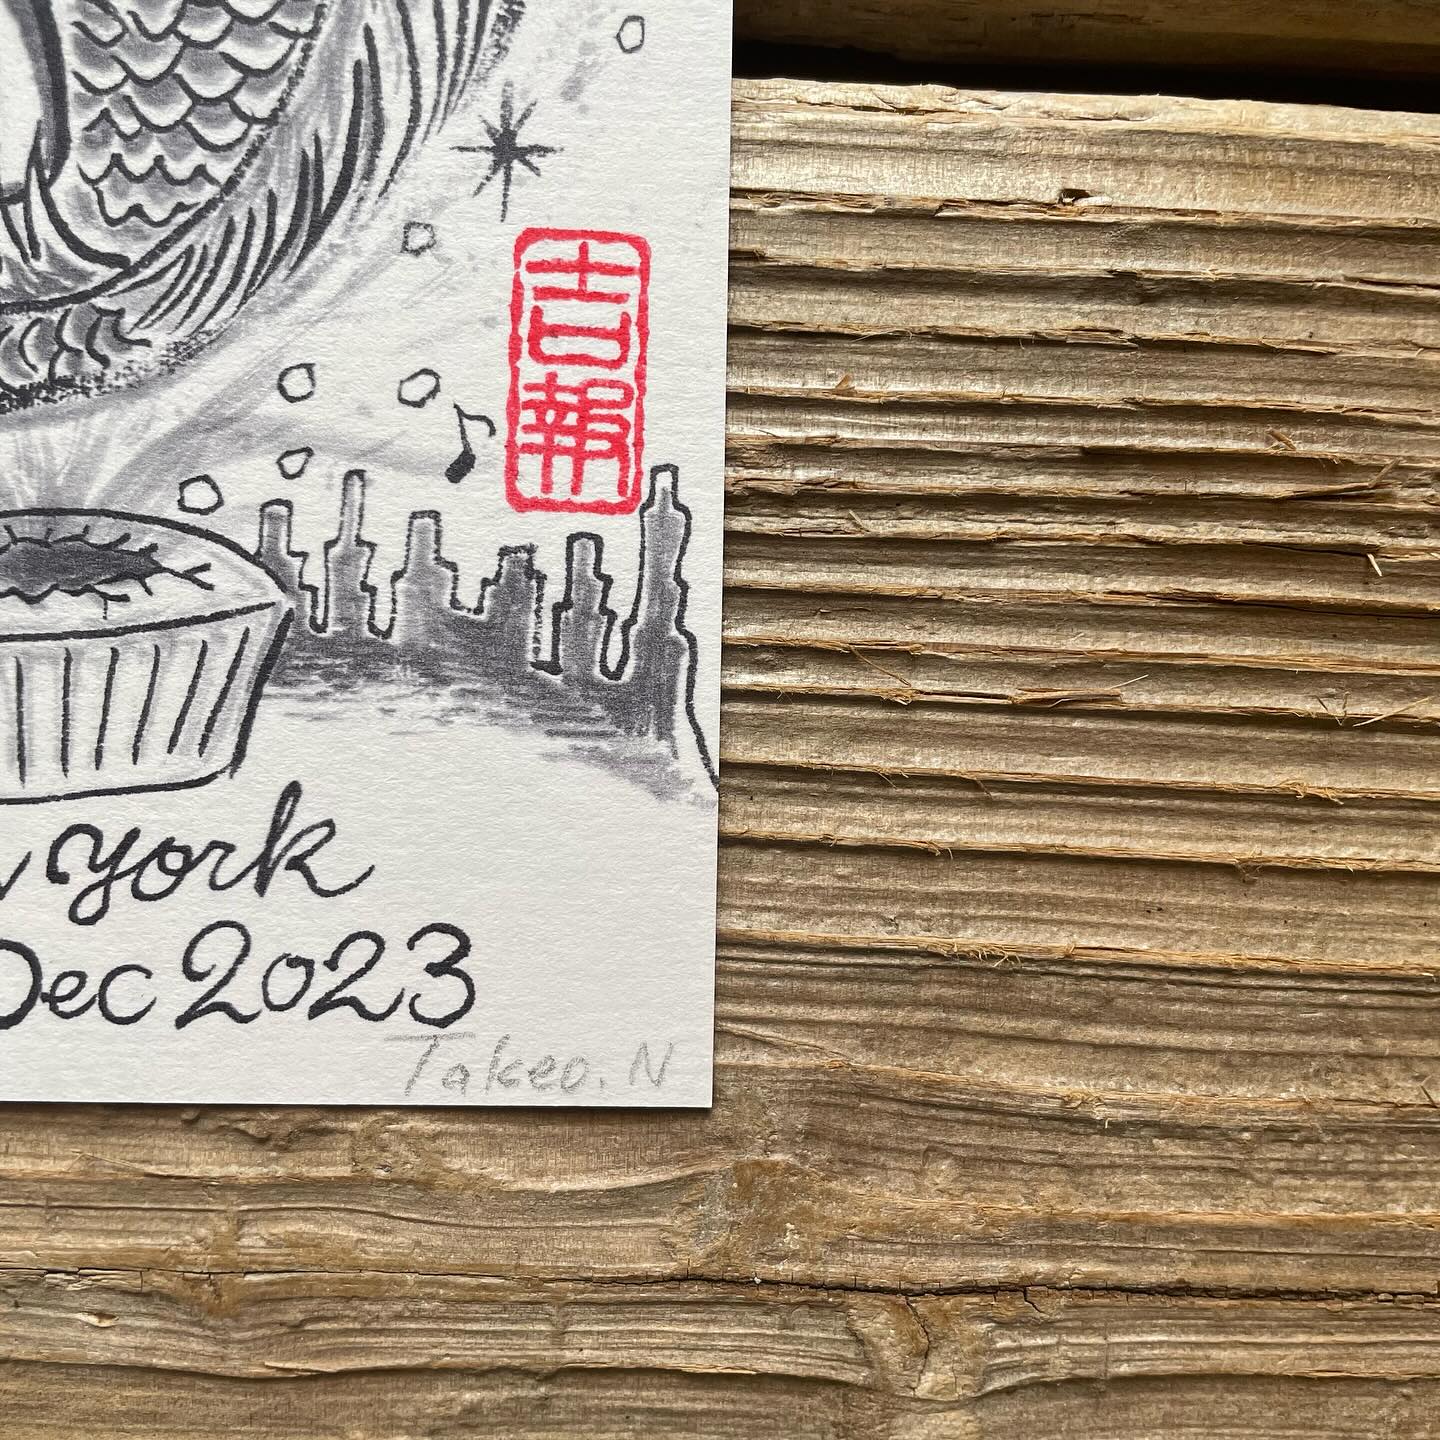 吉報
York
Dec 2023
Takeo. N